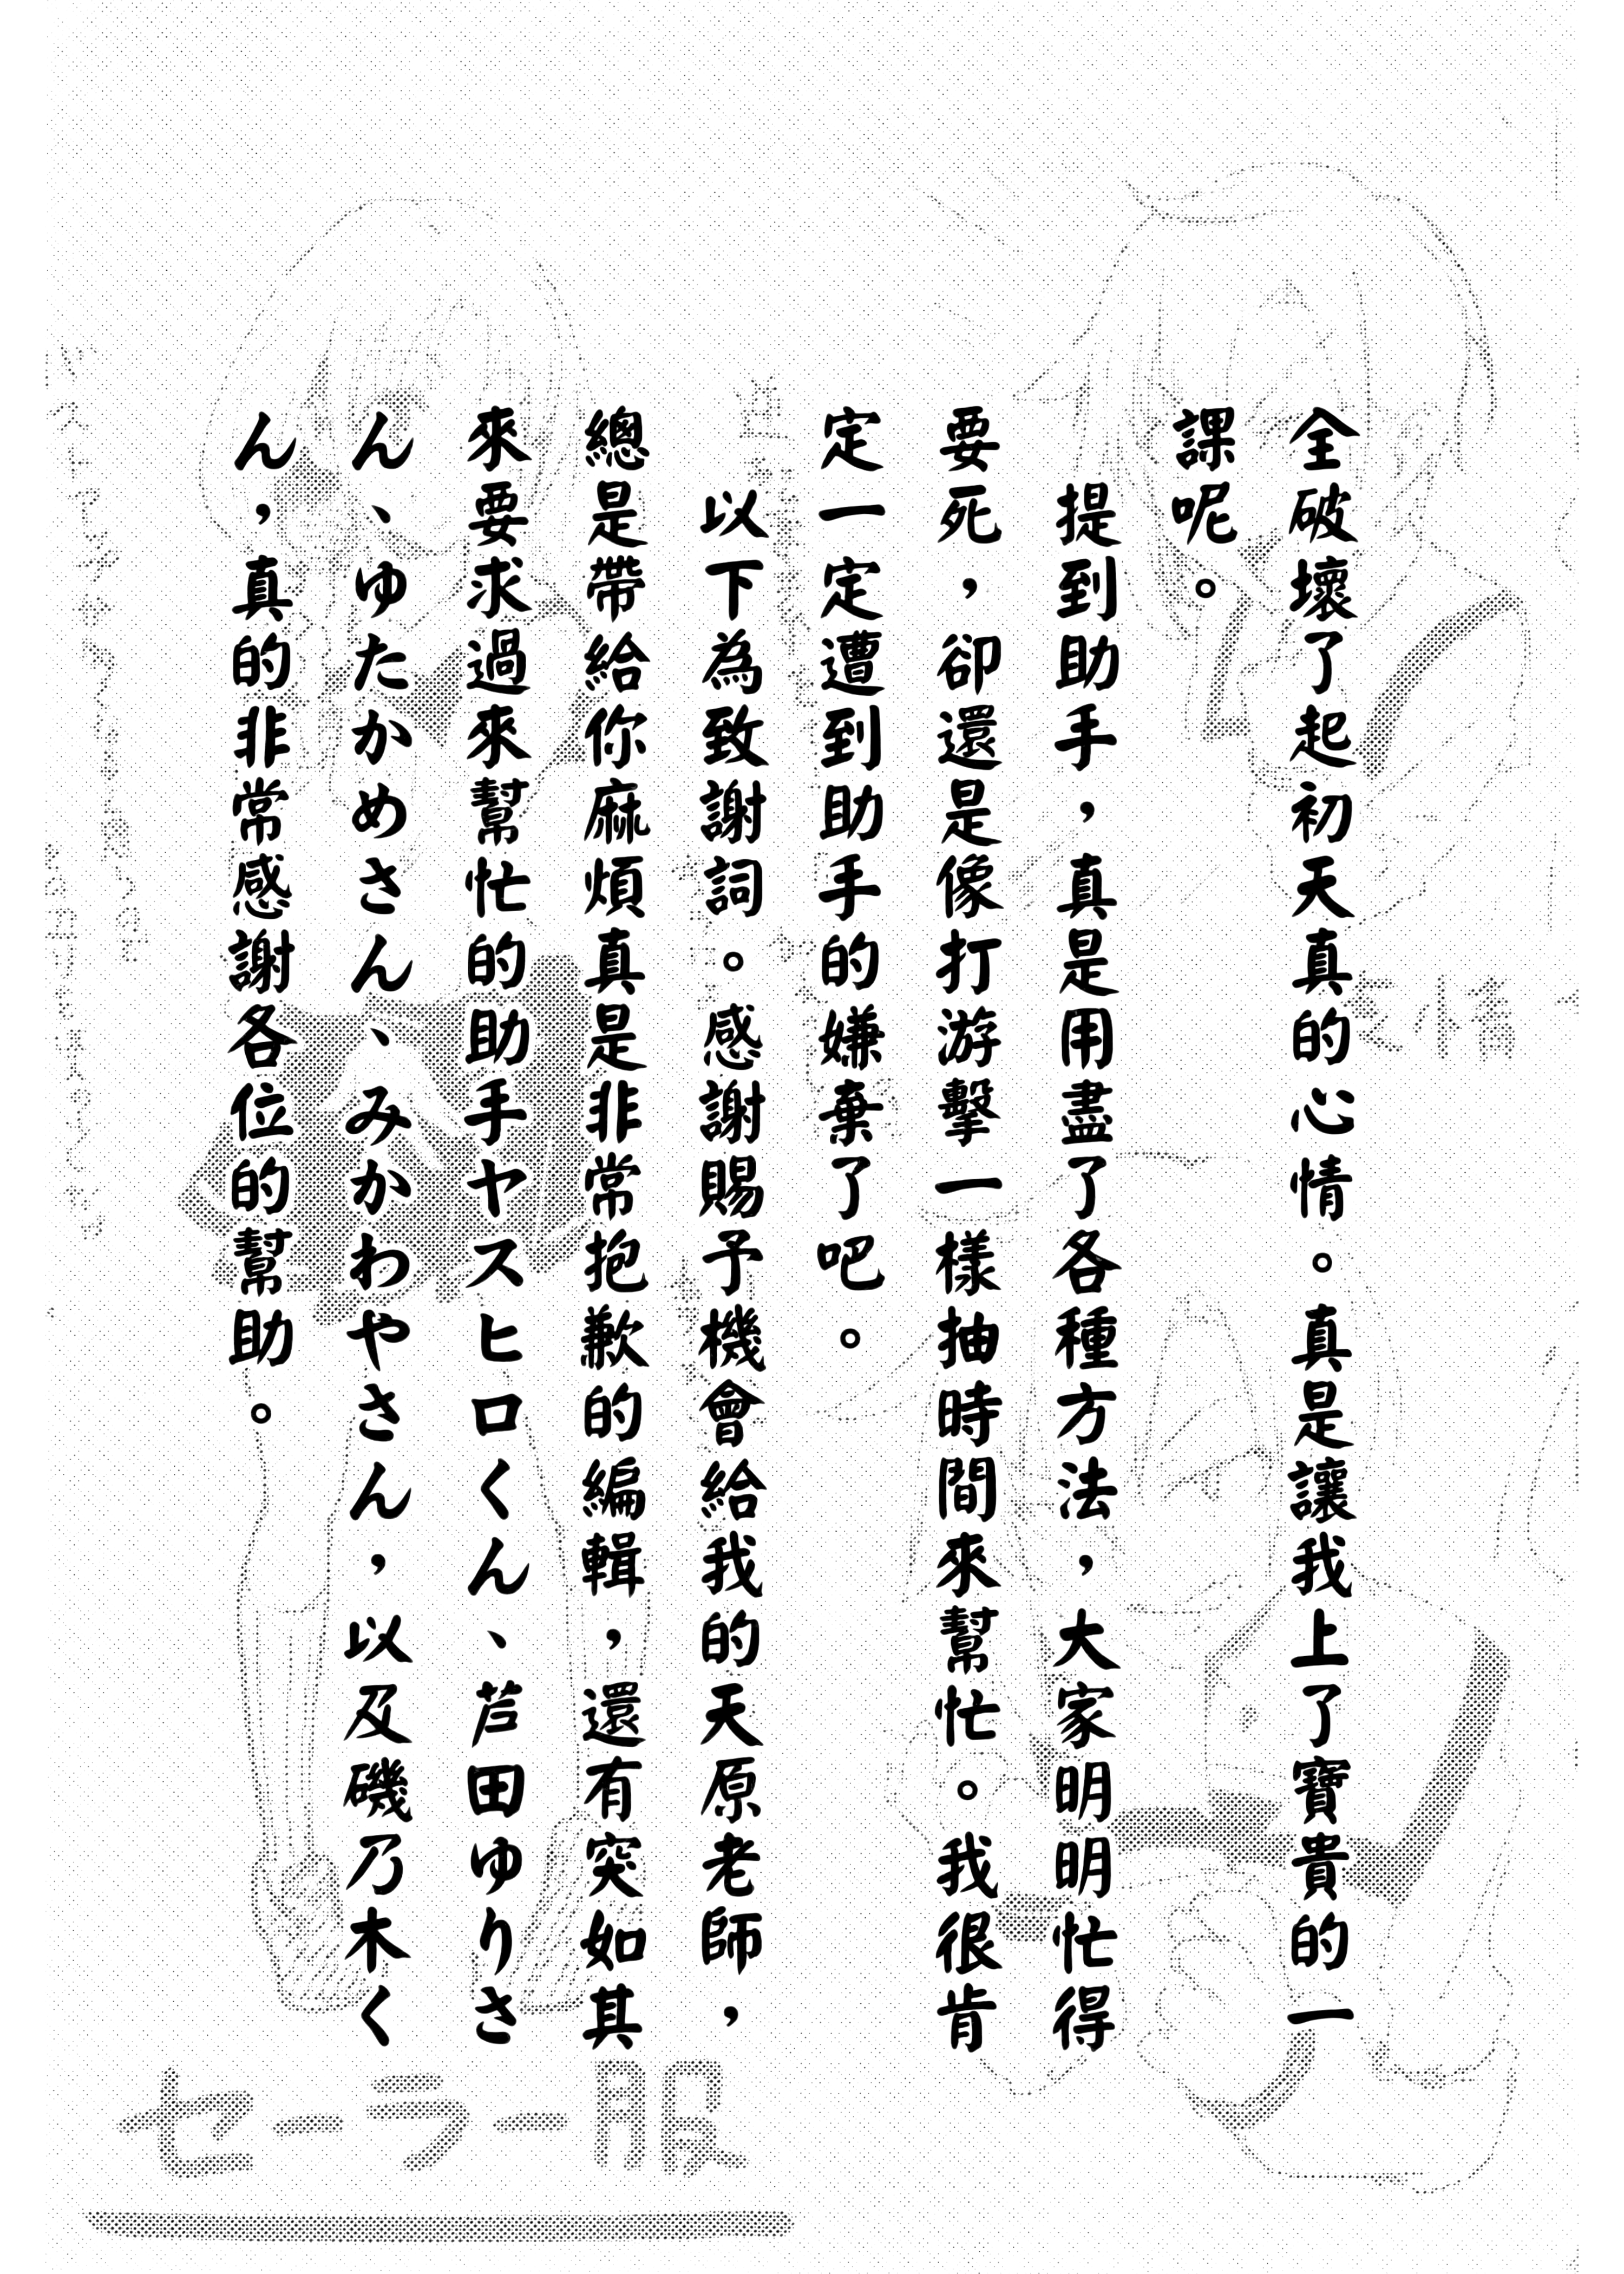 全破壞了起初天真的心情。真是讓我上了寶貴的一
課呢。
提到助手，真是用盡了各種方法，大家明明忙得
要死，卻還是像打游擊一樣抽時間來幫忙。我很肯
定一定遭到助手的嫌棄了吧。
以下為致謝詞。感謝賜予機會給我的天原老師，
總是帶給你麻煩真是非常抱歉的編輯，還有突如其
來要求過來幫忙的助手ヤスヒロくん、芦田ゆりさ
ん、ゆたかめさん、みかわやさん，以及磯乃木く
ん，真的非常感謝各位的幫助。
セーラー服